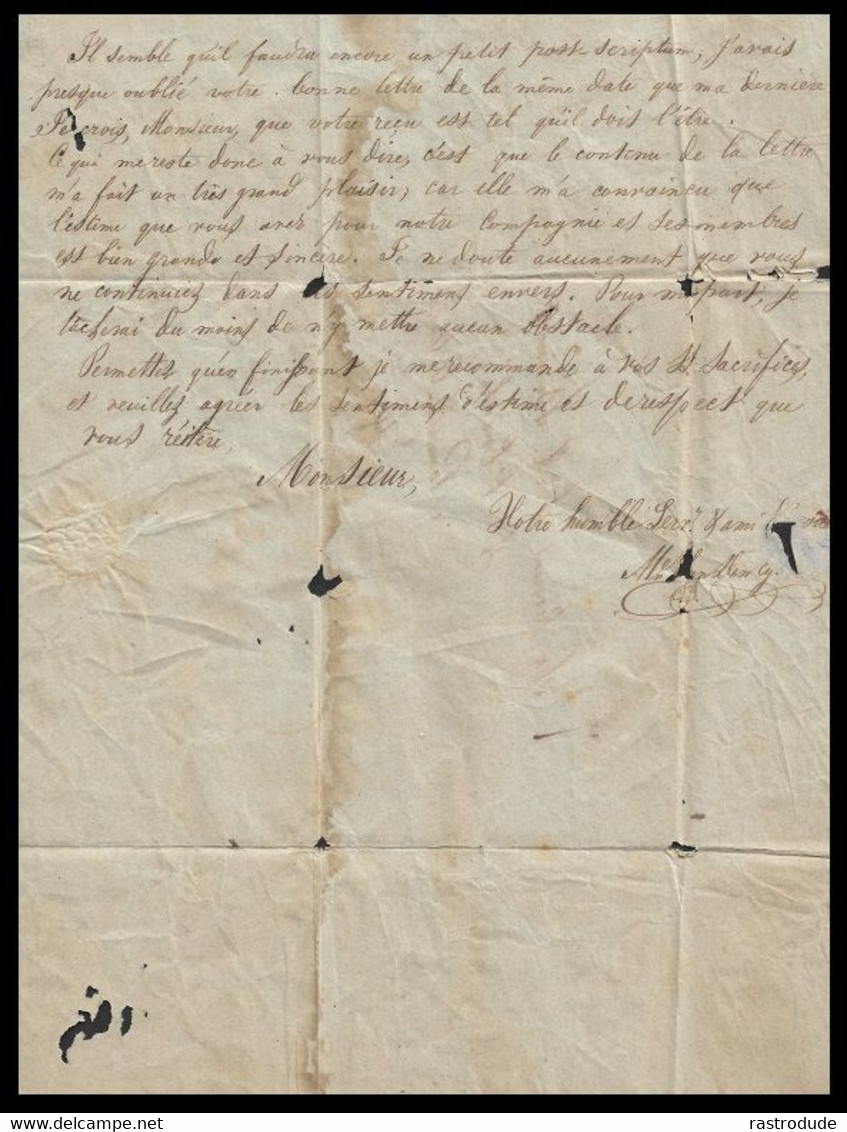 Il semble qu'il faudra encore un petit post-scriptum; J'avais
presque oublié votre bonne lettre de la même date que ma dernière
Je crois, Monsieur, que votre reçu est tel qu'il doit l'être.
Ce qui me reste donc à vous dire, c'est que le contenu de la lettre
m'a fait un très grand plaisir; car elle m'a convaincu que
l'estime que vous avez pour notre Compagnie et ses membres
est bien grande et sincère. Je ne doute aucunement que vous
ne continuiez dans ces sentimens envers. Pour ma part, je
tâcherai du moins de n'y mettre aucun obstacle.
Permettez qu'en finissant je me recommande à vos St. Sacrifices,
et veuillez agréer les sentimens d'estime et de respect que
vous réitère,
Monsieur,
Votre humble Serv. & ami
delcampe.net
rastrodude